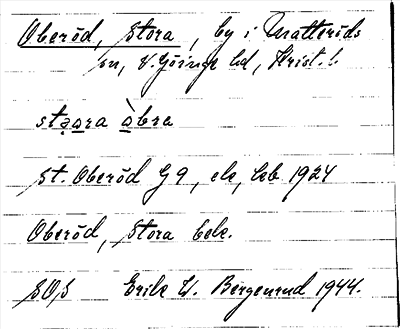 Oberöd, Stora, by i Matteröds
sn, V. Göinge hd, Krist. l.
stǝora òbra
St. Oberöd G 9, ek, Eeb 1924
Oberöd, Stora Eek.
SOS Erik W. Bergenrud 1944.